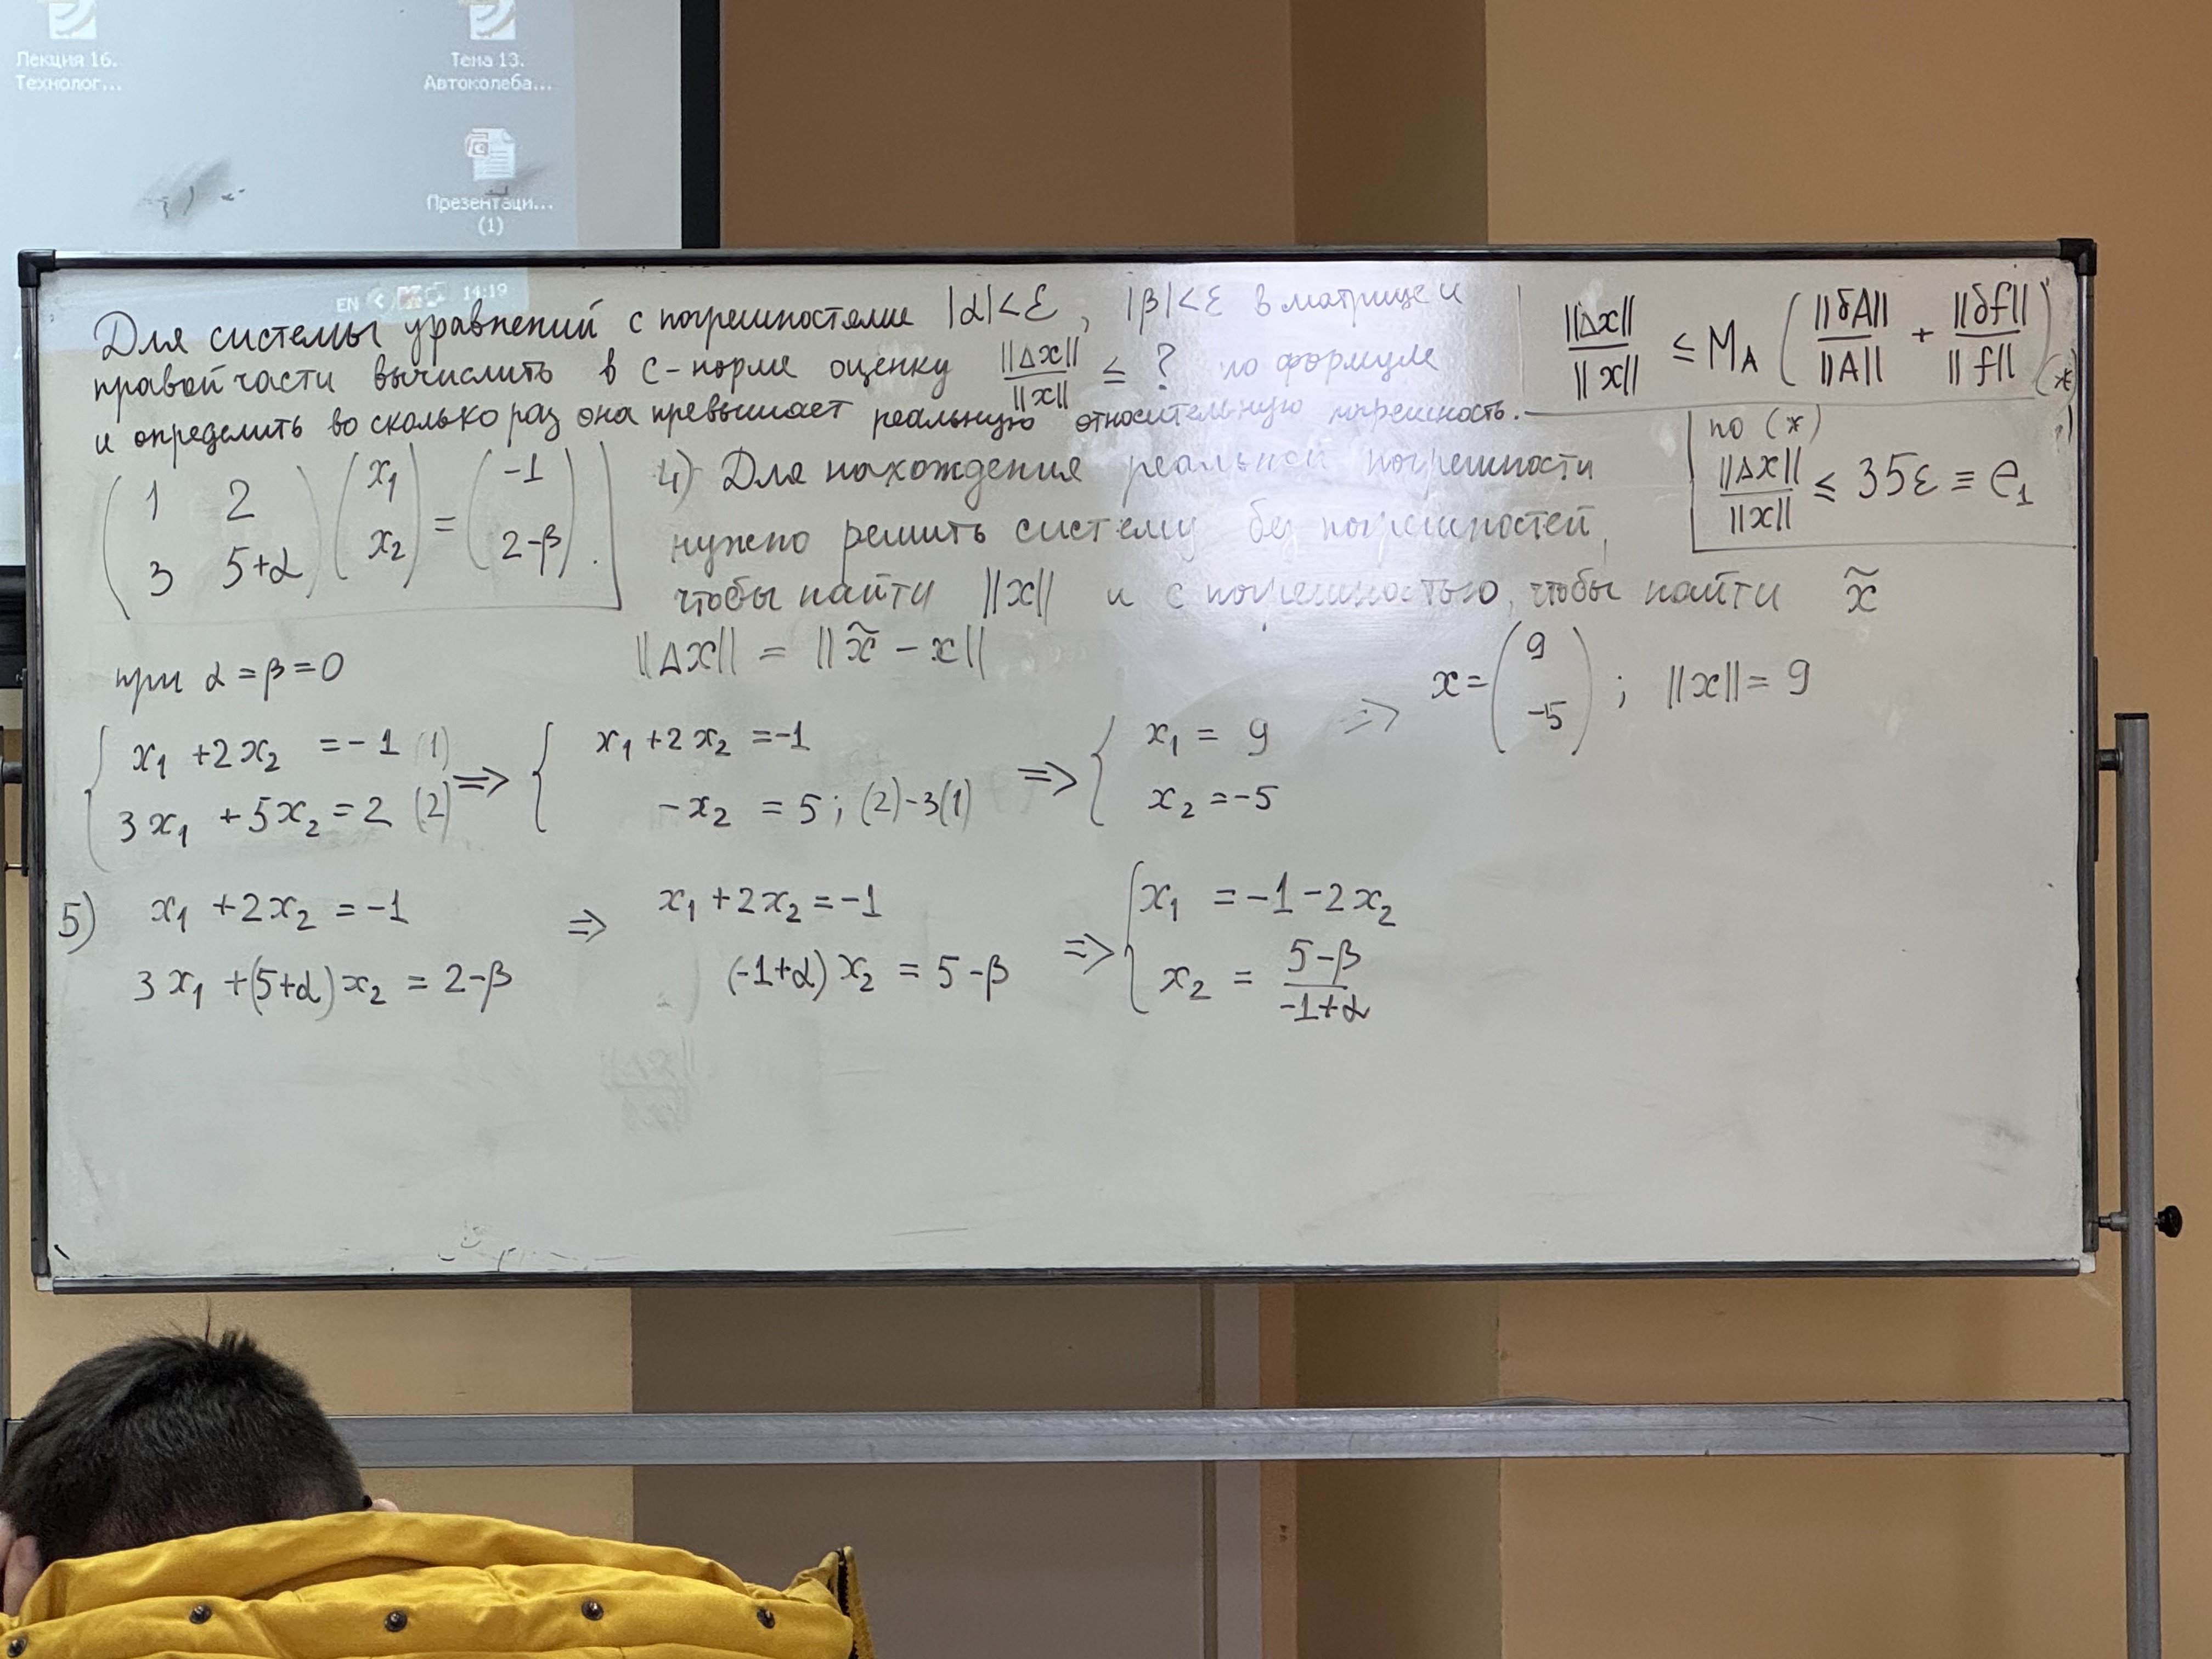 Лекция 16.
Технолог...
Тема 13.
Автоколеба...
Презентаци...
(1)
EN 14:19
Для системы уравнений с погрешностями |α|<ε, |β|<ε в матрице и
правой части вычислить в С-норме оценку ||Δx||/||x|| ≤ ? по формуле
и определить во сколько раз она превышает реальную относительную погрешность.
||Δx||/||x|| ≤ M_A (||δA||/||A|| + ||δf||/||f||) (*)
по (*)
||Δx||/||x|| ≤ 35ε ≡ e₁
(1 2; 3 5+α) (x₁; x₂) = (-1; 2-β).
4) Для нахождения реальной погрешности
нужно решить систему без погрешностей,
чтобы найти ||x|| и с погрешностью, чтобы найти x̃
||Δx|| = ||x̃ - x||
при α = β = 0
x₁ + 2x₂ = -1 (1) ⇒ { x₁ + 2x₂ = -1 ⇒ { x₁ = 9 ⇒ x = (9; -5) ; ||x|| = 9
3x₁ + 5x₂ = 2 (2) -x₂ = 5; (2)-3(1) x₂ = -5
5) x₁ + 2x₂ = -1 ⇒ x₁ + 2x₂ = -1 ⇒ { x₁ = -1 - 2x₂
3x₁ + (5+α)x₂ = 2-β (-1+α)x₂ = 5-β x₂ = (5-β)/(-1+α)